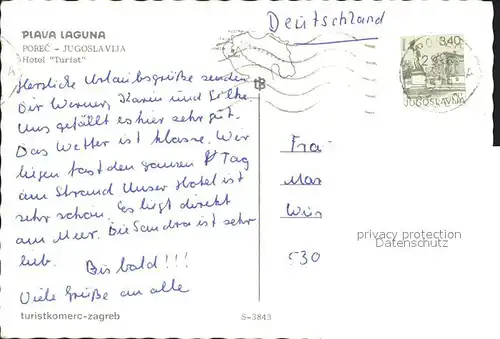 PLAVA LAGUNA
POREČ - JUGOSLAVIJA
Hotel "Turist"
Deutschland
3,40
JUGOSLAVIJA
Herzliche Urlaubsgrüße senden
Dir Werner, Karin und Silke.
Uns gefällt es hier sehr gut.
Das Wetter ist klasse. Wir
liegen fast den ganzen Tag
am Strand. Unser Hotel ist
sehr schön. Es liegt direkt
am Meer. Die Sandra ist sehr
lieb.
Bis bald!!!
Viele Grüße an alle
Fra
Mar
Wir
530
privacy protection
Datenschutz
turistkomerc-zagreb
S-3843